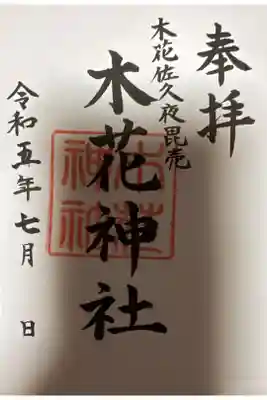 奉拝
木花佐久夜毘売
木花神社
令和五年七月　日